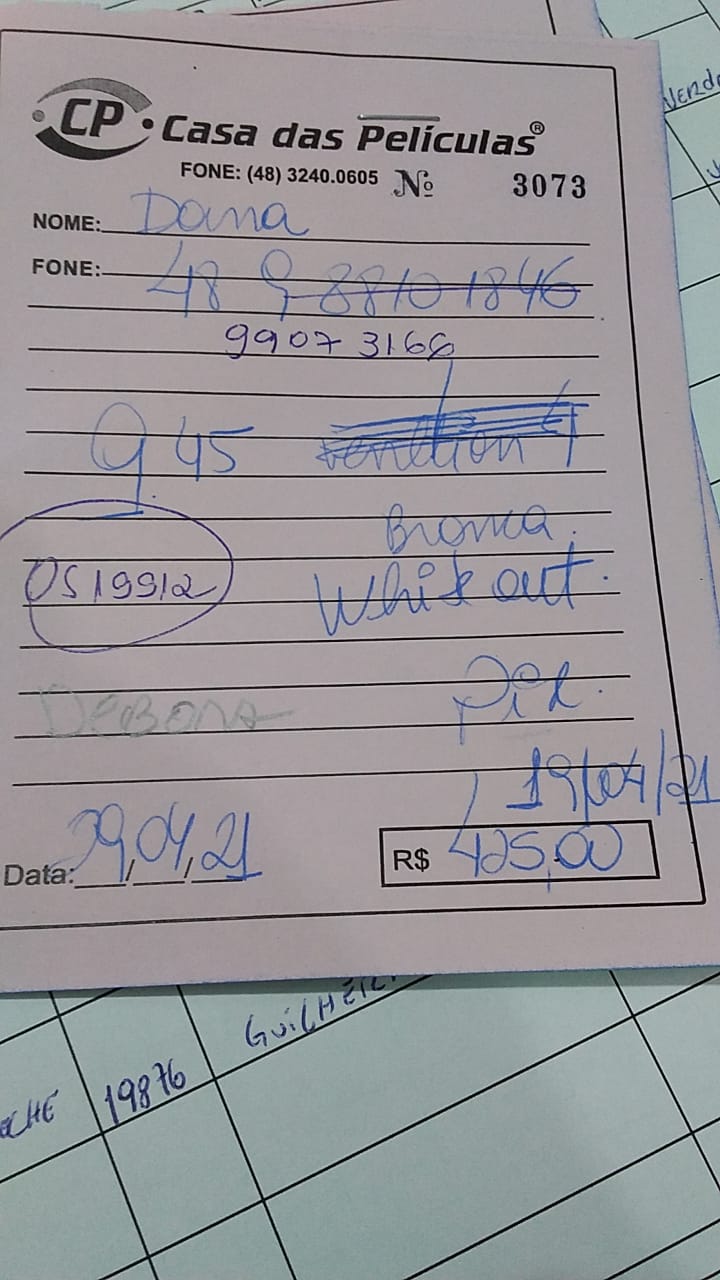 CP • Casa das Películas®
FONE: (48) 3240.0605 Nº 3073
NOME: Dana
FONE: 48 9 8810 1846
99073166
9.45
Bronca.
OS 19912
White out.
DEBONA
pix.
19/04/21
Data: 29/04/21
R$ 425,00
GUILHER
19876